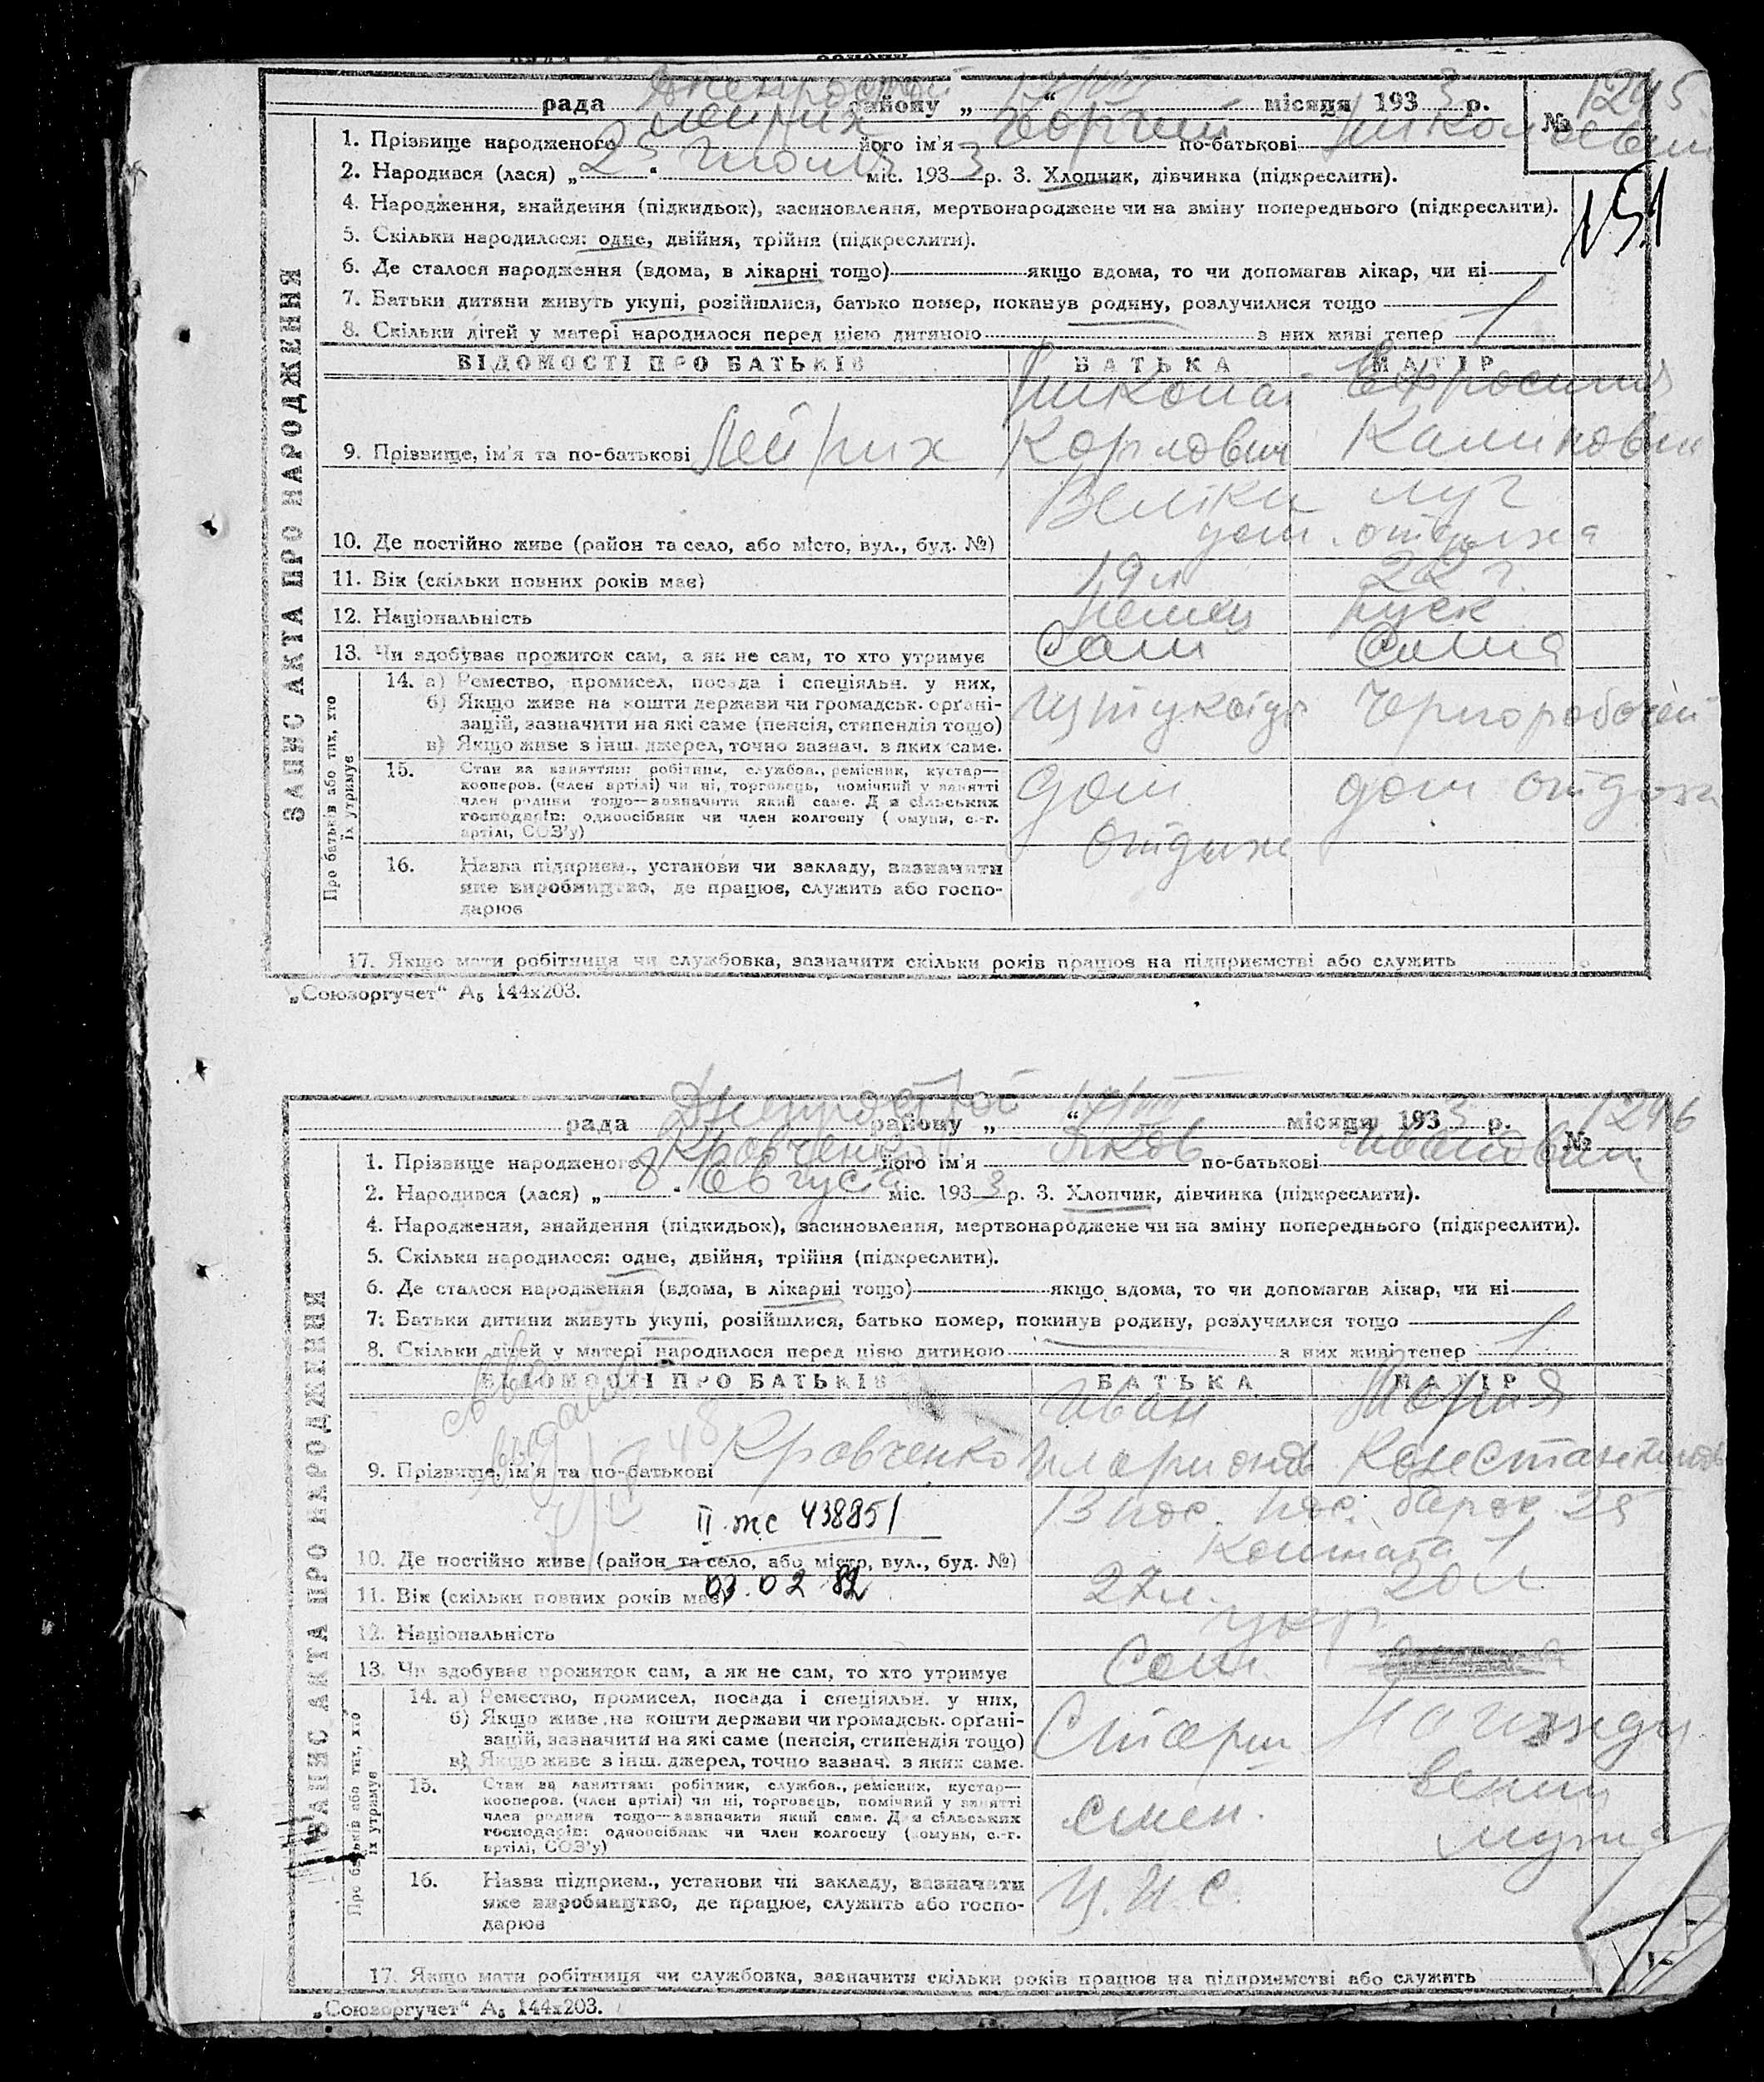 рада Днепрострой району „ 17/VIII “ місяця 193 3 р. № 1245
1. Прізвище народженого Лейрих його ім'я Георгий по-батькові Николаевич
2. Народився (лася) „ 25 “ Июля міс. 193 3 р. 3. Хлопчик, дівчинка (підкреслити).
151
4. Народження, знайдення (підкидьок), засиновлення, мертвонароджене чи на зміну попереднього (підкреслити).
5. Скільки народилося: одне, двійня, трійня (підкреслити).
6. Де сталося народження (вдома, в лікарні тощо) якщо вдома, то чи допомагав лікар, чи ні
7. Батьки дитини живуть укупі, розійшлися, батько помер, покинув родину, розлучилися тощо
8. Скільки дітей у матері народилося перед цією дитиною — з них живі тепер
ЗАПИС АКТА ПРО НАРОДЖЕННЯ
ВІДОМОСТІ ПРО БАТЬКІВ БАТЬКА МАТІР
Николай Ефросиния
9. Прізвище, ім'я та по-батькові Лейрих Карлович
Велики луг
10. Де постійно живе (район та село, або місто, вул., буд. №) дом. отдыха
11. Вік (скільки повних років має) 19 л 22 г.
12. Національність немец руск
13. Чи здобуває прожиток сам, а як не сам, то хто утримує Сам Сама
Про батьків або тих, хто їх утримує
14. а) Ремество, промисел, посада і спеціяльн. у них,
б) Якщо живе на кошти держави чи громадськ. органі-
зацій, зазначити на які саме (пенсія, стипендія тощо) Штукатур Чернорабочей
в) Якщо живе з інш. джерел, точно зазнач. з яких саме.
15. Стан за заняттям: робітник, службов., ремісник, кустар—
кооперов. (член артілі) чи ні, торговець, помічний у занятті дом дом отдыха
член родини тощо—зазначити який саме. Для сільських
господарів: одноосібник чи член колгоспу (комуни, с.-г.
артілі, СОЗ'у) отдыха
16. Назва підприєм., установи чи закладу, зазначити
яке виробництво, де працює, служить або госпо-
дарює
17. Якщо мати робітниця чи службовка, зазначити скільки років працює на підприємстві або служить
„Союзоргучет“ А₅ 144х203.
рада Днепрострой району „ 17/VIII “ місяця 193 3 р. № 1246
1. Прізвище народженого Кравченко його ім'я Яков по-батькові Иванович
2. Народився (лася) „ 8 “ Августа міс. 193 3 р. 3. Хлопчик, дівчинка (підкреслити).
4. Народження, знайдення (підкидьок), засиновлення, мертвонароджене чи на зміну попереднього (підкреслити).
5. Скільки народилося: одне, двійня, трійня (підкреслити).
6. Де сталося народження (вдома, в лікарні тощо) якщо вдома, то чи допомагав лікар, чи ні
7. Батьки дитини живуть укупі, розійшлися, батько помер, покинув родину, розлучилися тощо
8. Скільки дітей у матері народилося перед цією дитиною — з них живі тепер
ЗАПИС АКТА ПРО НАРОДЖЕННЯ
ВІДОМОСТІ ПРО БАТЬКІВ БАТЬКА МАТІР
Иван Мария
9. Прізвище, ім'я та по-батькові Кравченко Иларионов Константинов
II жс 438851
13 пос. барак 25
10. Де постійно живе (район та село, або місто, вул., буд. №) Комната 1
03.02 82
11. Вік (скільки повних років має) 27 л. 20 л
12. Національність укр
13. Чи здобуває прожиток сам, а як не сам, то хто утримує Сам.
Про батьків або тих, хто їх утримує
14. а) Ремество, промисел, посада і спеціяльн. у них,
б) Якщо живе на кошти держави чи громадськ. органі-
зацій, зазначити на які саме (пенсія, стипендія тощо) Старш. На ижди
в) Якщо живе з інш. джерел, точно зазнач. з яких саме.
15. Стан за заняттям: робітник, службов., ремісник, кустар— вении
кооперов. (член артілі) чи ні, торговець, помічний у занятті
член родини тощо—зазначити який саме. Для сільських смен. мужа
господарів: одноосібник чи член колгоспу (комуни, с.-г.
артілі, СОЗ'у)
16. Назва підприєм., установи чи закладу, зазначити
яке виробництво, де працює, служить або госпо-
дарює
17. Якщо мати робітниця чи службовка, зазначити скільки років працює на підприємстві або служить
„Союзоргучет“ А₅ 144х203.